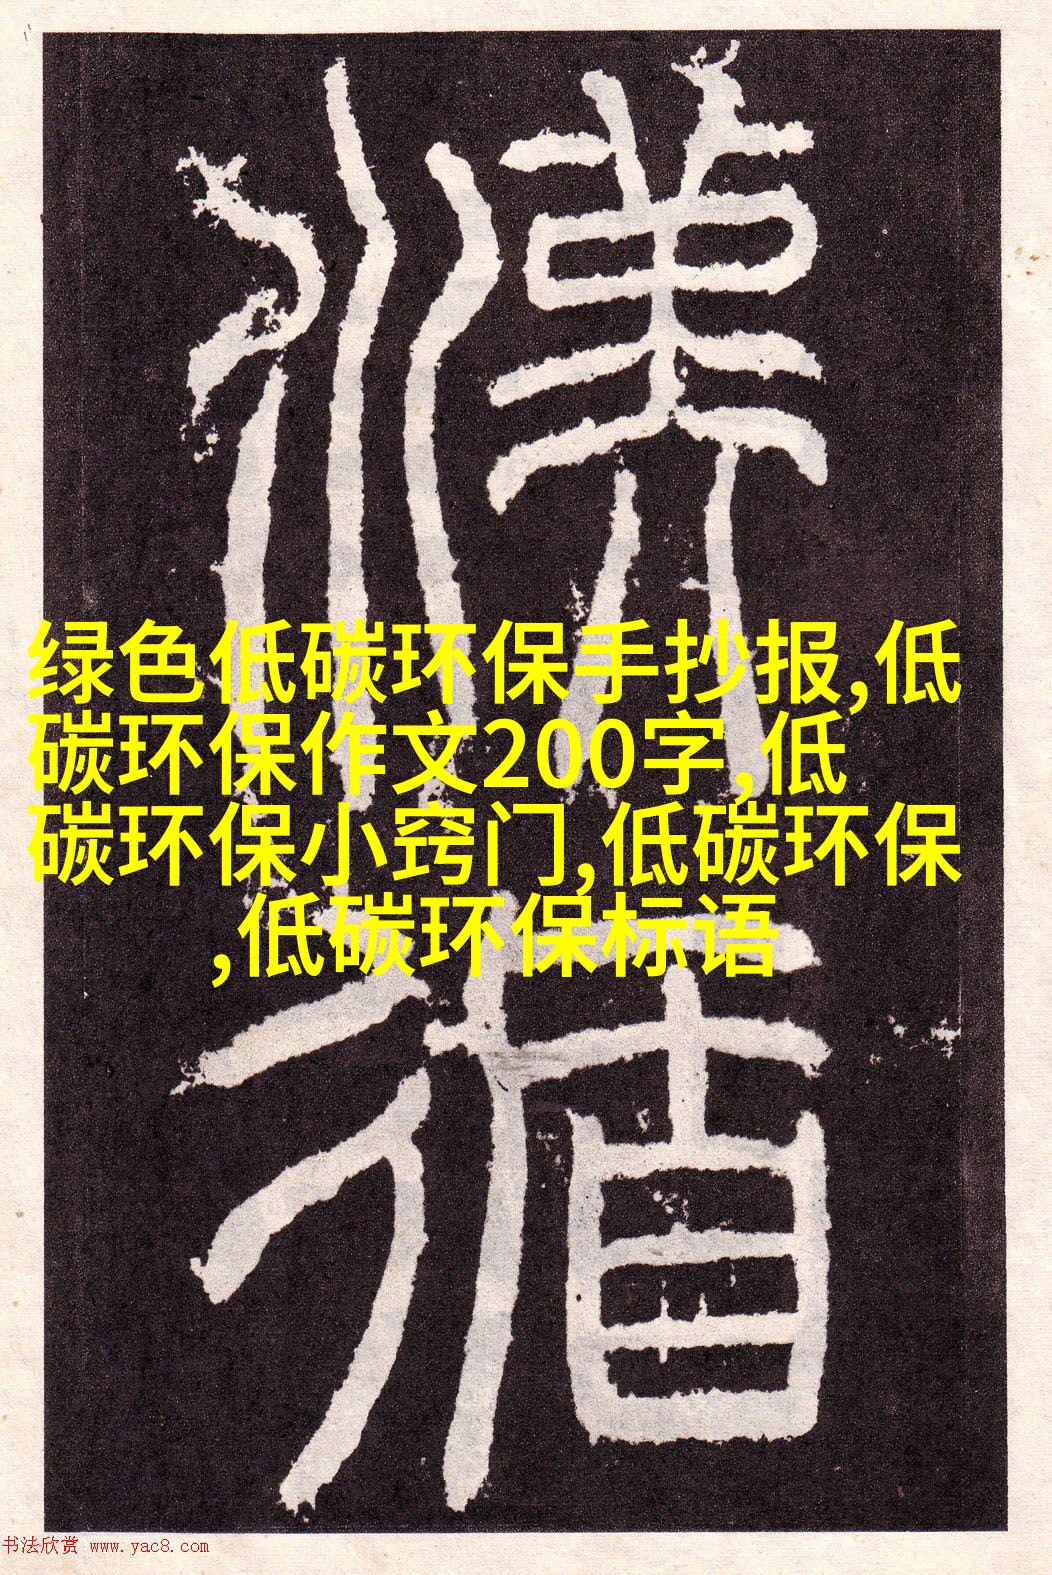 绿色低碳环保手抄报,低
碳环保作文200字,低
碳环保小窍门,低碳环保
,低碳环保标语
书法欣赏 www.yac8.com